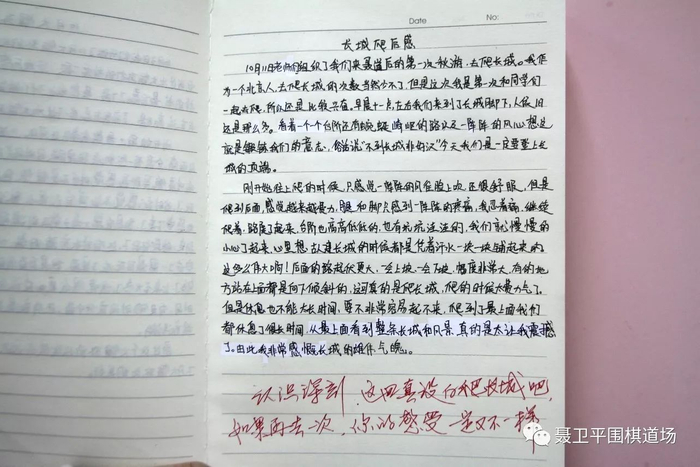 Date
No:
长城爬后感
10月11日老师们组织了我们来聂道后的第一次秋游，去爬长城。我作
为一个北京人，去爬长城的次数当然少不了，但是这次我是第一次和同学们
一起去爬，所以还是比较兴奋。早晨十一点左右我们来到了长城脚下，人依旧
还是那么多。看着一个个台阶还有蜿蜒崎岖的路以及一阵阵的风心想这
就是锻炼我们的意志，俗话说“不到长城非好汉”今天我们是一定要登上长
城的顶端。
刚开始往上爬的时候，只感觉一阵阵的风在脸上吹，还很舒服，但是
爬到后面，感觉越来越费力，腿和脚只感到一阵阵的疼痛，我忍着痛，继续
爬着，路陡了起来，台阶也高高低低的，也有坑坑洼洼的，我们就慢慢的
小心了起来，心里想：古人建长城的时候都是凭着汗水一块一块铺起来的
这多么伟大啊！后面的路起伏更大，一会上坡，一会下坡，幅度非常大，有的地
方站在上面都是向下倾斜的，这可真的是爬长城，爬的时候太费力气了。
但是休息也不能太长时间，要不非常容易起不来，爬到了最上面我们
都休息了很长时间，从最上面看到整条长城和风景，真的是太让我震撼
了。由此我非常感慨长城的雄伟气魄。
认识深刻，这回真没白爬长城吧，
如果再去一次，你的感受一定又不一样
聂卫平围棋道场